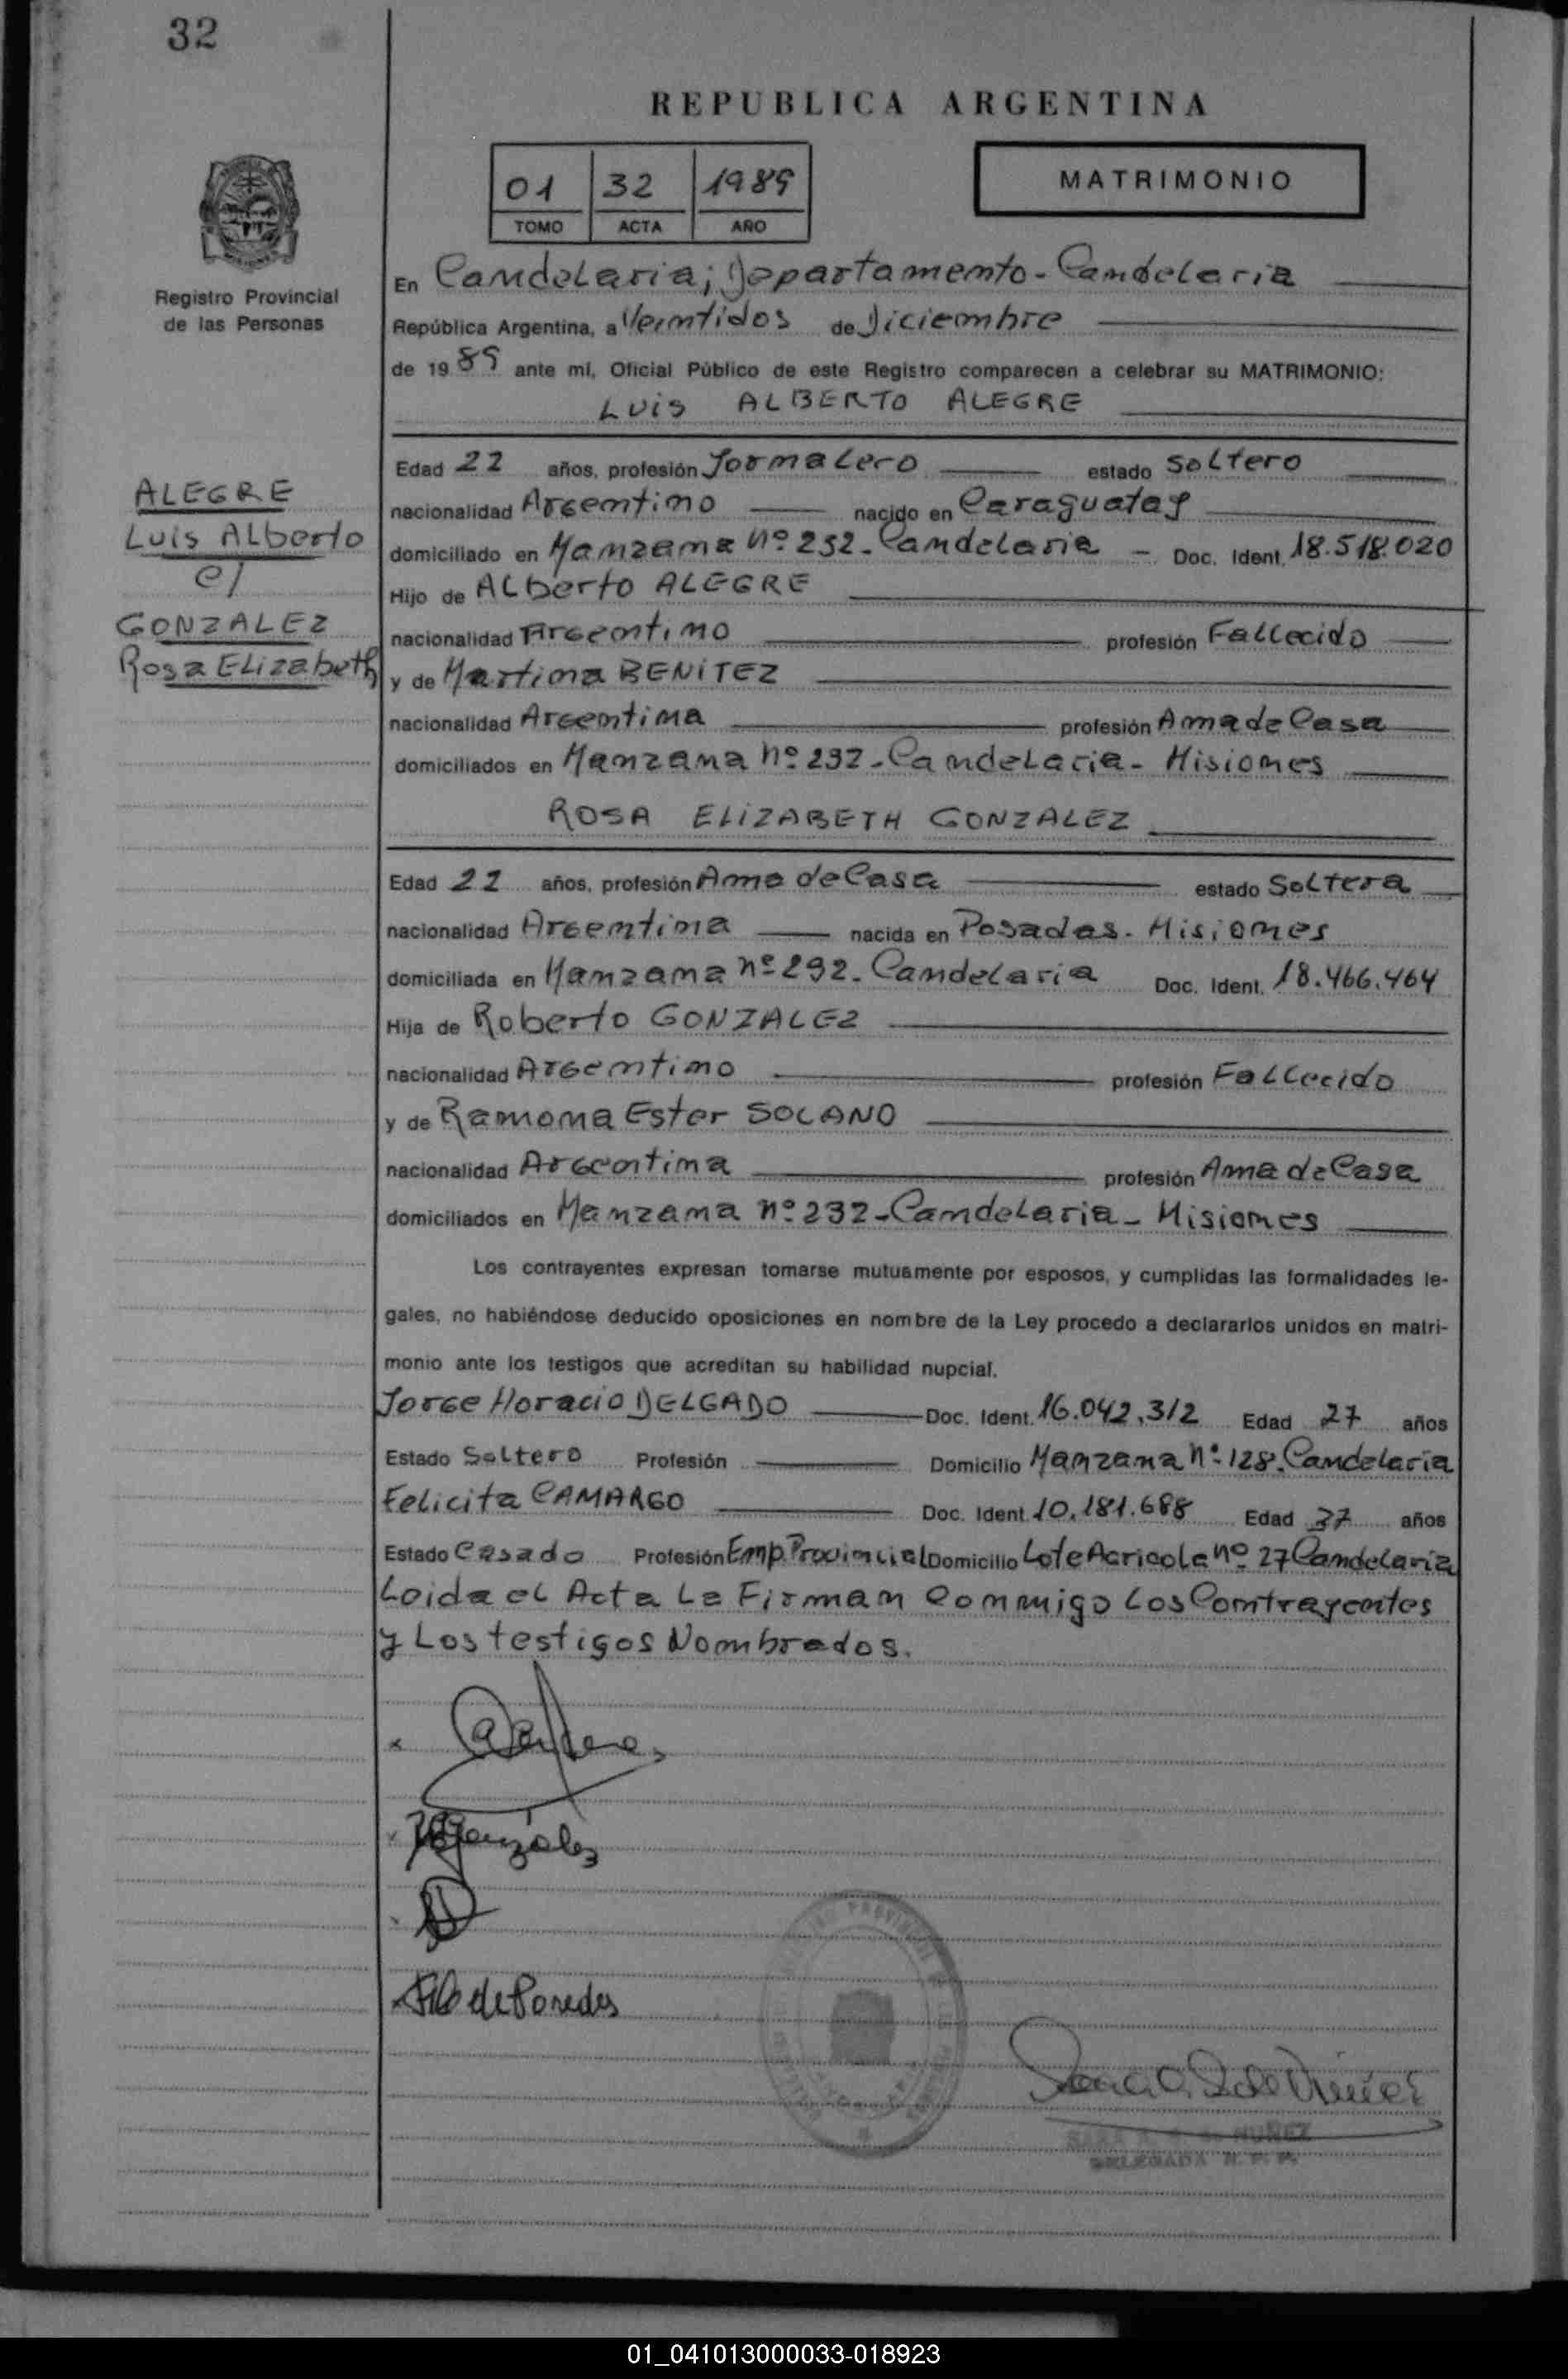 32
REPUBLICA ARGENTINA
01 32 1989
TOMO ACTA AÑO
MATRIMONIO
Registro Provincial
de las Personas
En Candelaria; Departamento - Candelaria
República Argentina, a Veintidos de Diciembre
de 19 89 ante mi, Oficial Público de este Registro comparecen a celebrar su MATRIMONIO:
LUIS ALBERTO ALEGRE
ALEGRE
Luis Alberto
c/
GONZALEZ
Rosa Elizabeth
Edad 22 años, profesión Jornalero estado Soltero
nacionalidad Argentino nacido en Caraguatay
domiciliado en Manzana Nº 232 - Candelaria - Doc. Ident. 18.518.020
Hijo de Alberto ALEGRE
nacionalidad Argentino profesión Fallecido
y de Martina BENITEZ
nacionalidad Argentina profesión Ama de Casa
domiciliados en Manzana Nº 232 - Candelaria - Misiones
ROSA ELIZABETH GONZALEZ
Edad 22 años, profesión Ama de Casa estado Soltera
nacionalidad Argentina nacida en Posadas - Misiones
domiciliada en Manzana nº 292 - Candelaria Doc. Ident. 18.466.464
Hija de Roberto GONZALEZ
nacionalidad Argentino profesión Fallecido
y de Ramona Ester SOLANO
nacionalidad Argentina profesión Ama de Casa
domiciliados en Manzana Nº 232 - Candelaria - Misiones
Los contrayentes expresan tomarse mutuamente por esposos, y cumplidas las formalidades le-
gales, no habiéndose deducido oposiciones en nombre de la Ley procedo a declararlos unidos en matri-
monio ante los testigos que acreditan su habilidad nupcial.
Jorge Horacio DELGADO Doc. Ident. 16.042.312 Edad 27 años
Estado Soltero Profesión Domicilio Manzana Nº 128. Candelaria
Felicita CAMARGO Doc. Ident. 10.181.688 Edad 37 años
Estado Casado Profesión Emp. Provincial Domicilio Lote Agricola nº 27 Candelaria
Loida el Acta La Firman Conmigo Los Contrayentes
y Los testigos Nombrados.
Gonzalez
de Paredes
NUÑEZ
DELEGADA R. P. P.
01_041013000033-018923